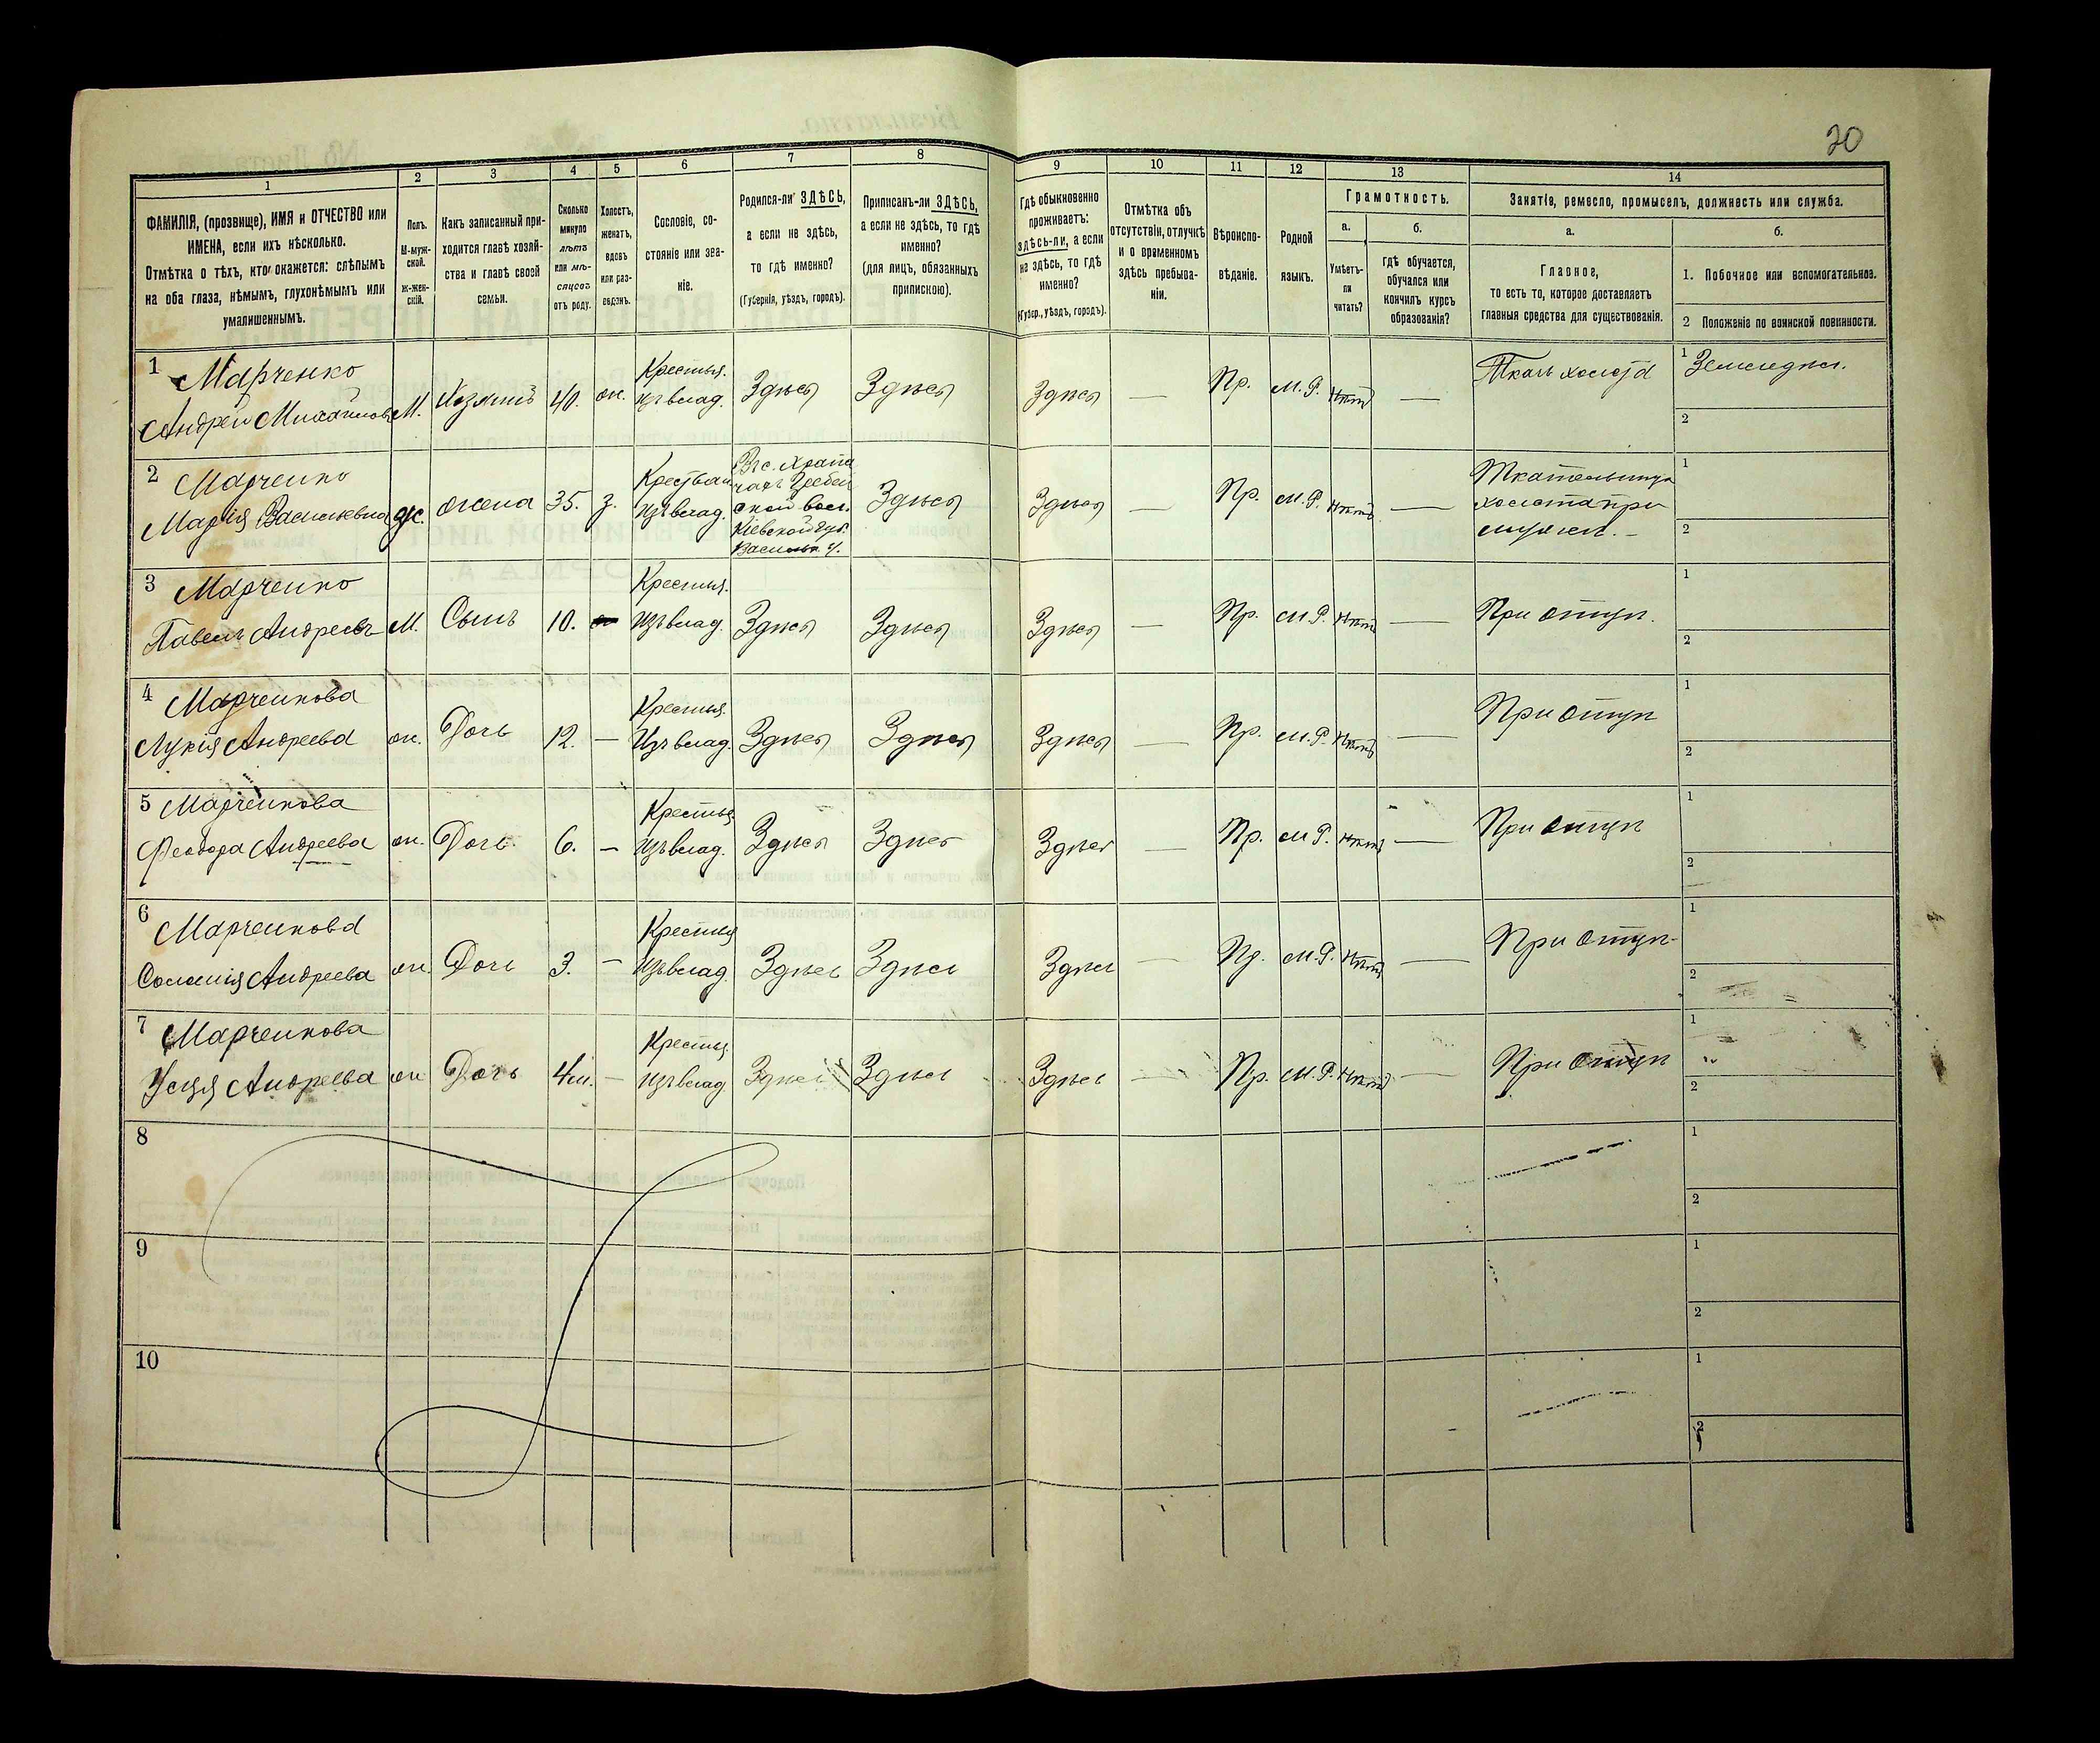 20
1
2
3
4
5
6
7
8
9
10
11
12
13
14
ФАМИЛІЯ, (прозвище), ИМЯ и ОТЧЕСТВО или
ИМЕНА, если ихъ нѣсколько.
Отмѣтка о тѣхъ, кто окажется: слѣпымъ
на оба глаза, нѣмымъ, глухонѣмымъ или
умалишеннымъ.
Полъ.
М-муж-
ской.
Ж-жен-
скій.
Какъ записанный при-
ходится главѣ хозяй-
ства и главѣ своей
семьи.
Сколько
минуло
лѣтъ
или мѣ-
сяцевъ
отъ роду.
Холостъ,
женатъ,
вдовъ
или раз-
веденъ.
Сословіе, со-
стояніе или зва-
ніе.
Родился-ли ЗДѢСЬ,
а если не здѣсь,
то гдѣ именно?
(Губернія, уѣздъ, городъ).
Приписанъ-ли ЗДѢСЬ,
а если не здѣсь, то гдѣ
именно?
(для лицъ, обязанныхъ
припискою).
Гдѣ обыкновенно
проживаетъ:
здѣсь-ли, а если
не здѣсь, то гдѣ
именно?
(Губер., уѣздъ, городъ).
Отмѣтка объ
отсутствіи, отлучкѣ
и о временномъ
здѣсь пребыва-
ніи.
Вѣроиспо-
вѣданіе.
Родной
языкъ.
Грамотность.
а.
Умѣетъ-
ли
читать?
б.
гдѣ обучается,
обучался или
кончилъ курсъ
образованія?
Занятіе, ремесло, промыселъ, должность или служба.
а.
Главное,
то есть то, которое доставляетъ
главныя средства для существованія.
б.
1. Побочное или вспомогательное.
2 Положеніе по воинской повинности.
1 Марченко
Андрей Михайловъ М. Хозяинъ 40. ж. Крестья. изъ влад. Здѣсь Здѣсь Здѣсь — Пр. М.Р. Нѣтъ — Ткачъ холста 1 Земледѣл.
2
2 Марченко
Марія Васильевна ж. жена 35. з. Крестьян. изъ влад.
Въ с.
Гребен
ской вол.
Кіевской губ.
Васильк. у.
Здѣсь Здѣсь — Пр. М.Р. Нѣтъ —
Ткательница
холста при
мужѣ. 1
2
3 Марченко
Павелъ Андреевъ М. Сынъ 10. Крестья. изъ влад. Здѣсь Здѣсь Здѣсь — Пр. М.Р. Нѣтъ — При отцѣ. 1
2
4 Марченкова
Лукія Андреева ж. Дочь 12. — Крестья. изъ влад. Здѣсь Здѣсь Здѣсь — Пр. М.Р. Нѣтъ — При отцѣ 1
2
5 Марченкова
Феодора Андреева ж. Дочь. 6. — Крестья. изъ влад. Здѣсь Здѣсь Здѣсь — Пр. М.Р. Нѣтъ — При отцѣ 1
2
6 Марченкова
Соломія Андреева ж. Дочь 3. — Крестья изъ влад. Здѣсь Здѣсь Здѣсь — Пр. М.Р. Нѣтъ — При отцѣ 1
2
7 Марченкова
Андреева ж Дочь 4 м. — Крестья. изъ влад. Здѣсь Здѣсь Здѣсь — Пр. М.Р. Нѣтъ — При отцѣ 1
2
8 1
2
9 1
2
10 1
2